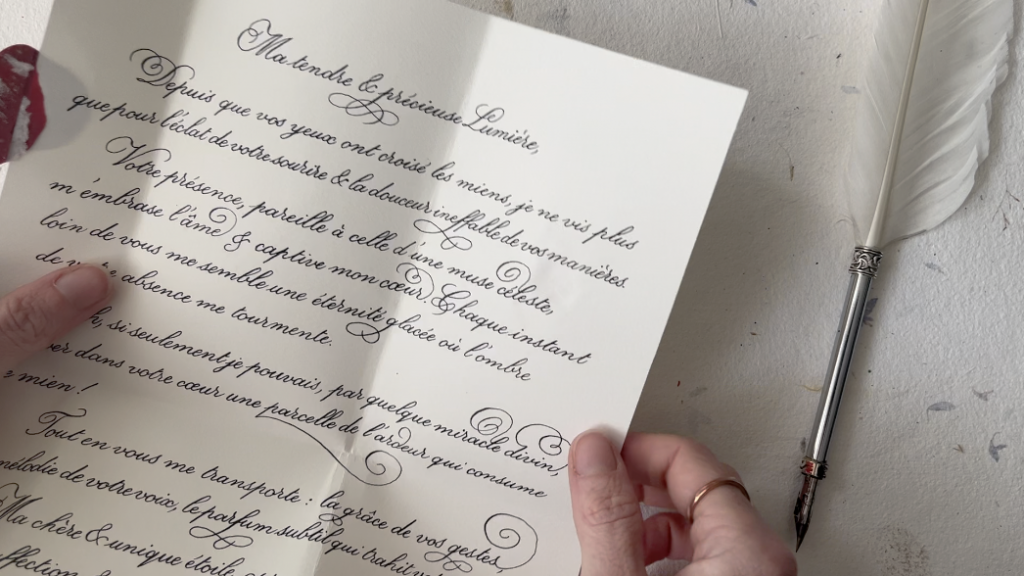 Ma tendre & précieuse Lumière,
Depuis que vos yeux ont croisé les miens, je ne vis plus
que pour l'éclat de votre sourire & la douceur ineffable de vos manières.
Votre présence, pareille à celle d'une muse céleste,
m'embrase l'âme & captive mon cœur. Chaque instant
loin de vous me semble une éternité glacée où l'ombre
de absence me tourmente.
si seulement je pouvais, par quelque miracle divin,
dans votre cœur une parcelle de l'ardeur qui consume
mien !
Tout en vous me transporte : la grâce de vos gestes,
mélodie de votre voix, le parfum subtil qui trahit
Ma chère & unique étoile,